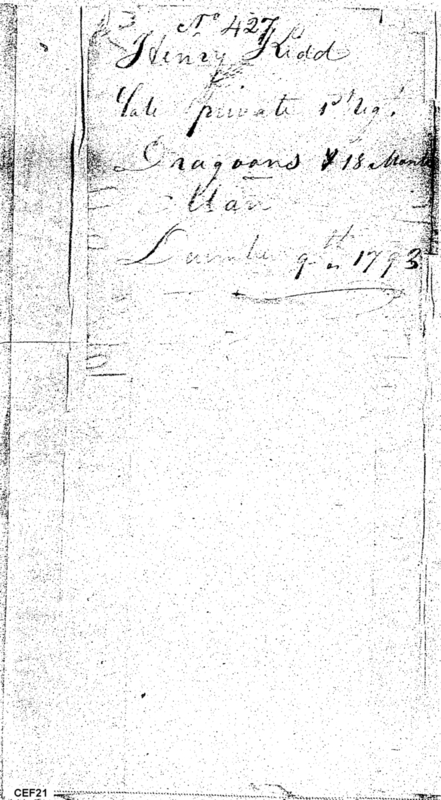 No 427
Henry Kidd
Late private 1st Regt
Dragoons & 18 Months
Man
December 9th 1793
CEF21